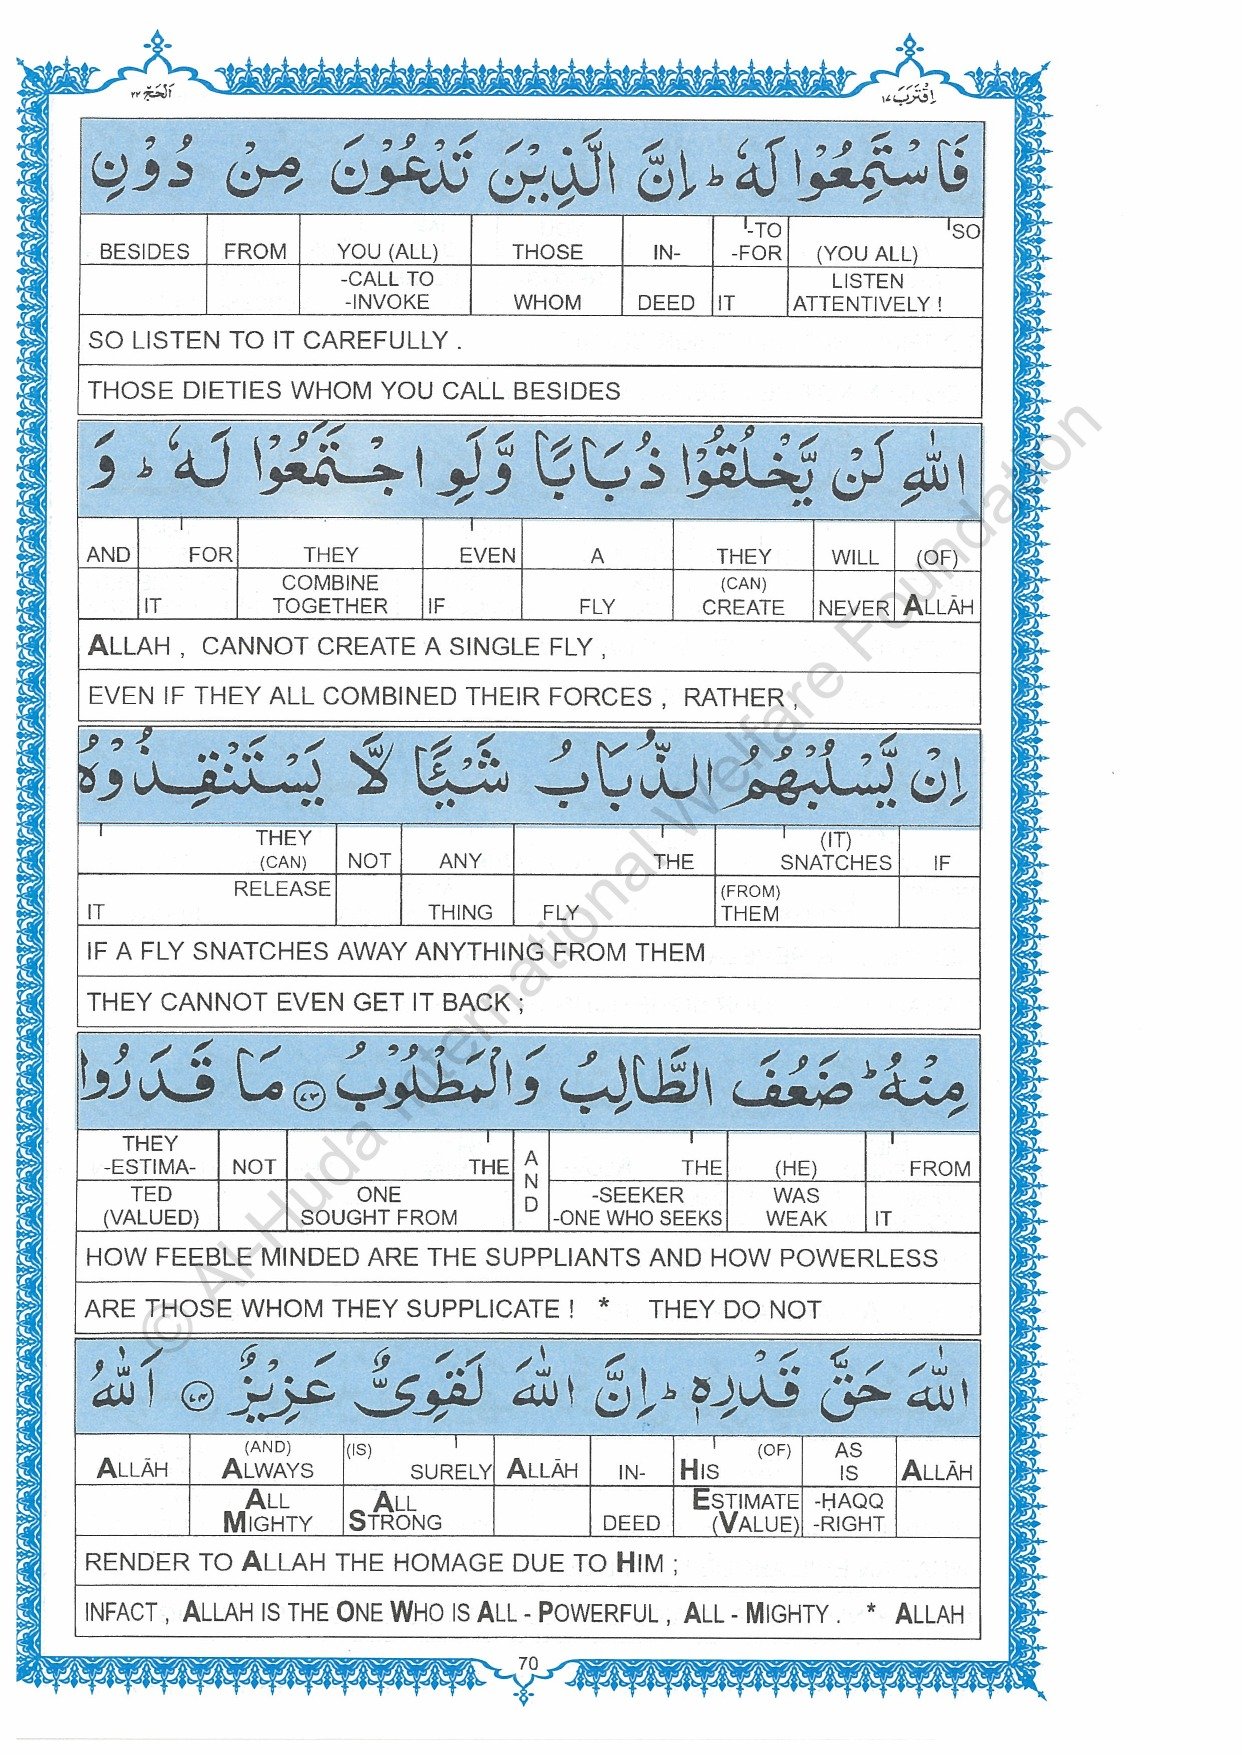 اَلْحَجّ ٢٢
اِقْتَرَبَ ١٧
فَاسْتَمِعُوْا لَهٗ ؕ اِنَّ الَّذِيْنَ تَدْعُوْنَ مِنْ دُوْنِ
BESIDES FROM YOU (ALL) THOSE IN- -TO -FOR (YOU ALL) SO
-CALL TO -INVOKE WHOM DEED IT LISTEN ATTENTIVELY !
SO LISTEN TO IT CAREFULLY .
THOSE DIETIES WHOM YOU CALL BESIDES
اللّٰهِ لَنْ يَّخْلُقُوْا ذُبَابًا وَّلَوِ اجْتَمَعُوْا لَهٗ ؕ وَ
AND FOR THEY EVEN A THEY WILL (OF)
IT COMBINE TOGETHER IF FLY (CAN) CREATE NEVER ALLĀH
ALLAH , CANNOT CREATE A SINGLE FLY ,
EVEN IF THEY ALL COMBINED THEIR FORCES , RATHER ,
اِنْ يَّسْلُبْهُمُ الذُّبَابُ شَيْـًٔا لَّا يَسْتَنْقِذُوْهُ
THEY (CAN) NOT ANY THE (IT) SNATCHES IF
IT RELEASE THING FLY (FROM) THEM
IF A FLY SNATCHES AWAY ANYTHING FROM THEM
THEY CANNOT EVEN GET IT BACK ;
مِنْهُ ؕ ضَعُفَ الطَّالِبُ وَالْمَطْلُوْبُ ﴿٧٣﴾ مَا قَدَرُوا
THEY -ESTIMA- NOT THE AND THE (HE) FROM
TED (VALUED) ONE SOUGHT FROM -SEEKER -ONE WHO SEEKS WAS WEAK IT
HOW FEEBLE MINDED ARE THE SUPPLIANTS AND HOW POWERLESS
ARE THOSE WHOM THEY SUPPLICATE ! * THEY DO NOT
اللّٰهَ حَقَّ قَدْرِهٖ ؕ اِنَّ اللّٰهَ لَقَوِىٌّ عَزِيْزٌ ﴿٧٤﴾ اَللّٰهُ
ALLĀH (AND) ALWAYS (IS) SURELY ALLĀH IN- HIS (OF) AS IS ALLĀH
ALL MIGHTY ALL STRONG DEED ESTIMATE (VALUE) -ḤAQQ -RIGHT
RENDER TO ALLAH THE HOMAGE DUE TO HIM ;
INFACT , ALLAH IS THE ONE WHO IS ALL - POWERFUL , ALL - MIGHTY . * ALLAH
70
© Al-Huda International Welfare Foundation